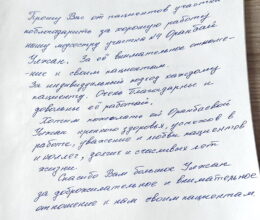 Прошу Вас от пациентов участка
поблагодарить за хорошую работу
нашу медсестру участка №4 Оранбаеву
Улжан. За её внимательное отноше-
ние к своим пациентам.
За индивидуальный подход каждому
пациенту. Очень благодарны и
довольны её работой.
Хотим пожелать ей Оранбаевой
Улжан крепкого здоровья, успехов в
работе, уважение и любви пациентов
и коллег, долгих и счастливых лет
жизни.
Спасибо Вам большое Улжан
за доброжелательное и внимательное
отношение к нам своим пациентам